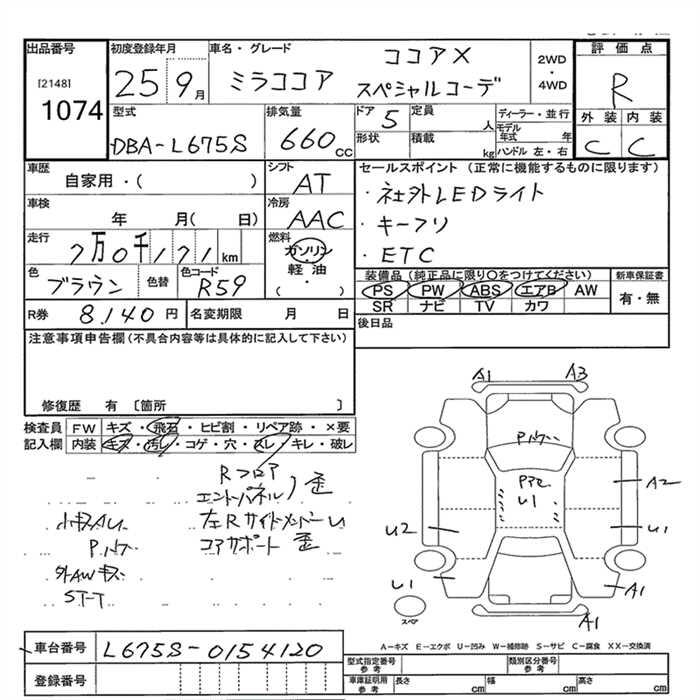 出品番号
[2148]
1074
初度登録年月
25 9月
車名・グレード
ココアX
ミラココア スペシャルコーデ
2WD
・
4WD
評価点
R
外装 内装
C C
型式
DBA-L675S
排気量
660cc
ドア 5
定員 人
形状
積載 kg
ディーラー・並行
モデル年式 年
ハンドル 左・右
車歴
自家用・( )
シフト
AT
セールスポイント (正常に機能するものに限ります)
・社外LEDライト
・キーフリ
・ETC
車検
年 月( 日)
冷房
AAC
走行
7万0千171km
燃料
ガソリン
・
軽油
・
( )
色
ブラウン
色替
色コード
R59
装備品 (純正品に限り○をつけてください)
PS PW ABS エアB AW
SR ナビ TV カワ
新車保証書
有・無
R券 8,140円
名変期限 月 日
後日品
注意事項申告欄(不具合内容等は具体的に記入して下さい)
修復歴 有 〔箇所 〕
検査員記入欄
FW キズ・飛石・ヒビ割・リペア跡・×要
内装 キズ・汚レ・コゲ・穴・スレ・キレ・破レ
Rフロア
エンドパネル)歪
小キズAU
左Rサイドメンバー u
P.ハケ
コアサポート 歪
外AWキズ
ST-T
A1 A3
P.ハケ
U1
A2
U2
U1
U1
A1
スペア
A1
A-キズ E-エクボ U-凹み W-補修跡 S-サビ C-腐食 XX-交換済
車台番号 L675S-0154120
登録番号
型式指定番号参考
類別区分番号参考
車庫証明用参考
長さ cm
幅 cm
高さ cm